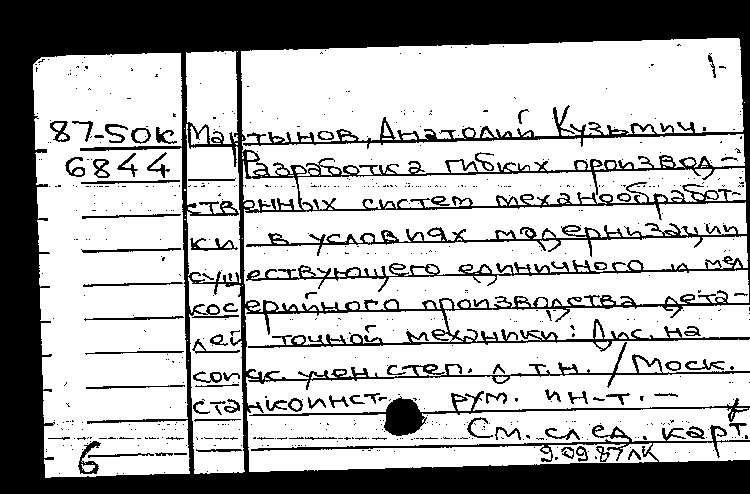 1-
87-50к Мартынов, Анатолий Кузьмич.
6844 Разработка гибких производ-
ственных систем механообработ-
ки в условиях модернизации
существующего единичного и мел
косерийного производства дета-
лей точной механики: Дис. на
соиск. учен. степ. д.т.н. / Моск.
станкоинст- рум. ин-т. -
См. след. карт.
6 9.09.87 ЛК